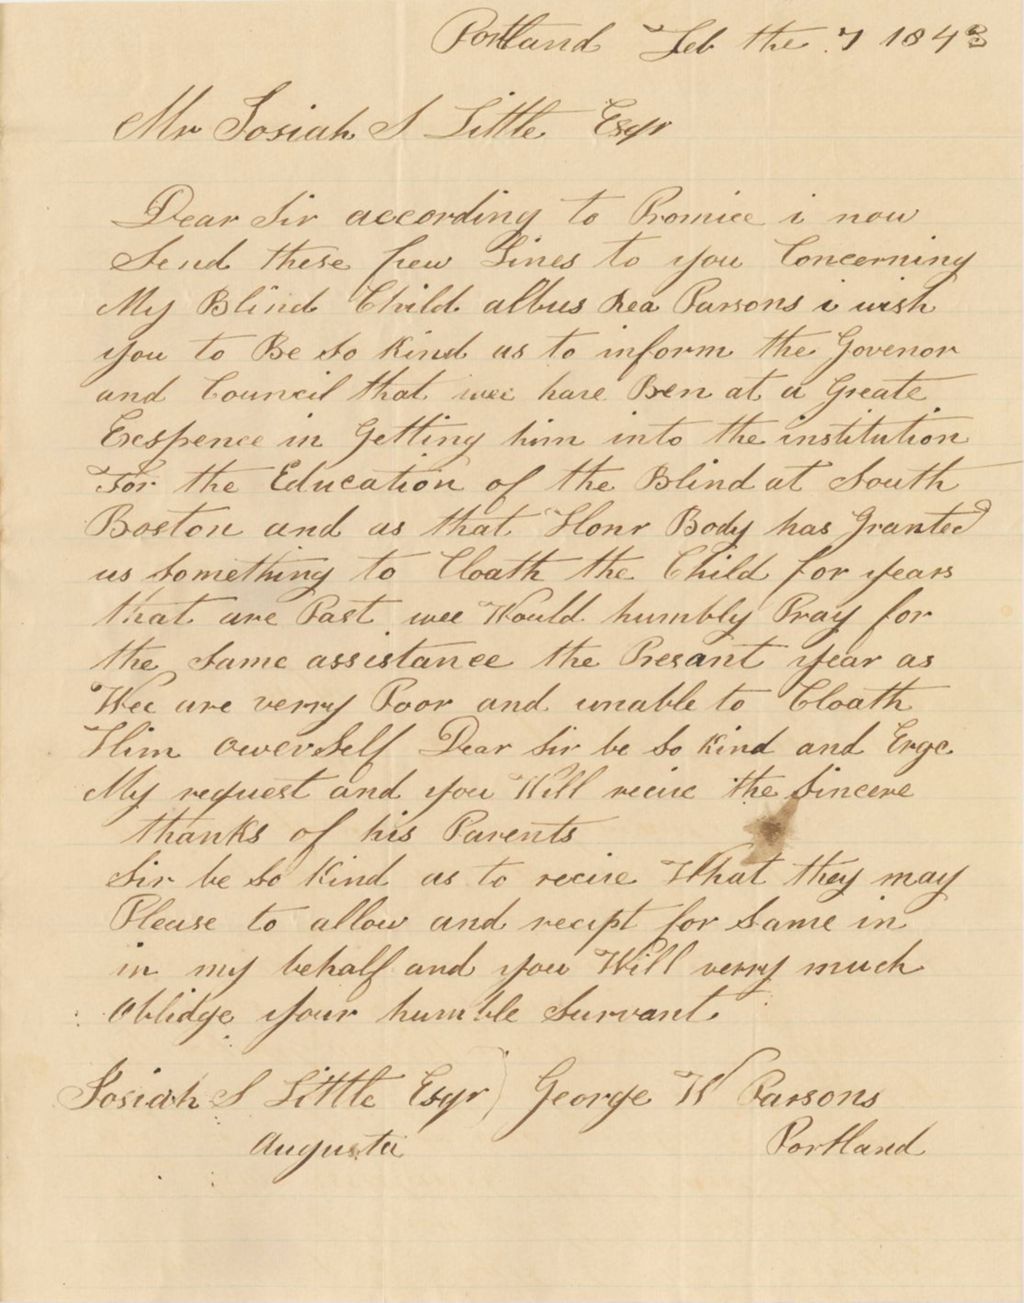 Portland Feb the 7 1843
Mr Josiah S Little Esqr
Dear Sir according to Promice i now
Send these few Lines to you Concerning
My Blind Child albus Rea Parsons i wish
you to Be so Kind as to inform the Govenor
and Council that wee have Ben at a Greate
Excspence in Getting him into the institution
For the Education of the Blind at South
Boston and as that Honr Body has Granted
us something to Cloath the Child for years
that are Past wee Would humbly Pray for
the same assistance the Presant year as
Wee are verry Poor and unable to Cloath
Him owerself Dear Sir be so Kind and Erge
My request and you Will recive the Sincere
thanks of his Parents
Sir be so Kind as to recive What they may
Please to allow and recipt for Same in
in my behalf and you Will verry much
Oblidge your humble Survant
Josiah S Little Esqr) George W Parsons
Augusta Portland